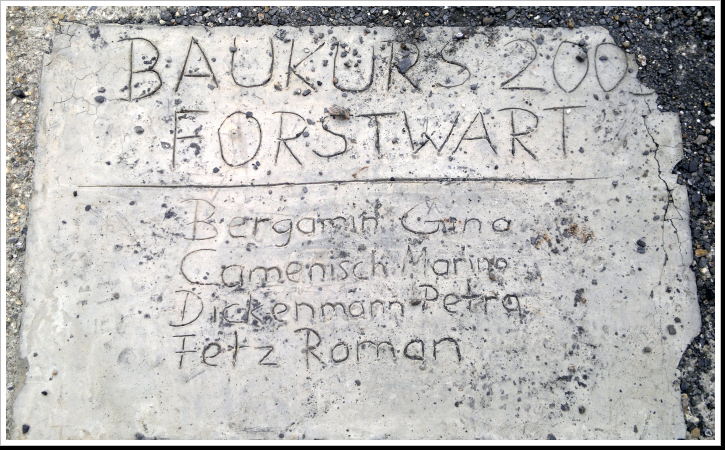 BAUKURS 200
FORSTWART
Bergamin Gino
Camenisch Marino
Dickenmann Petra
Fetz Roman